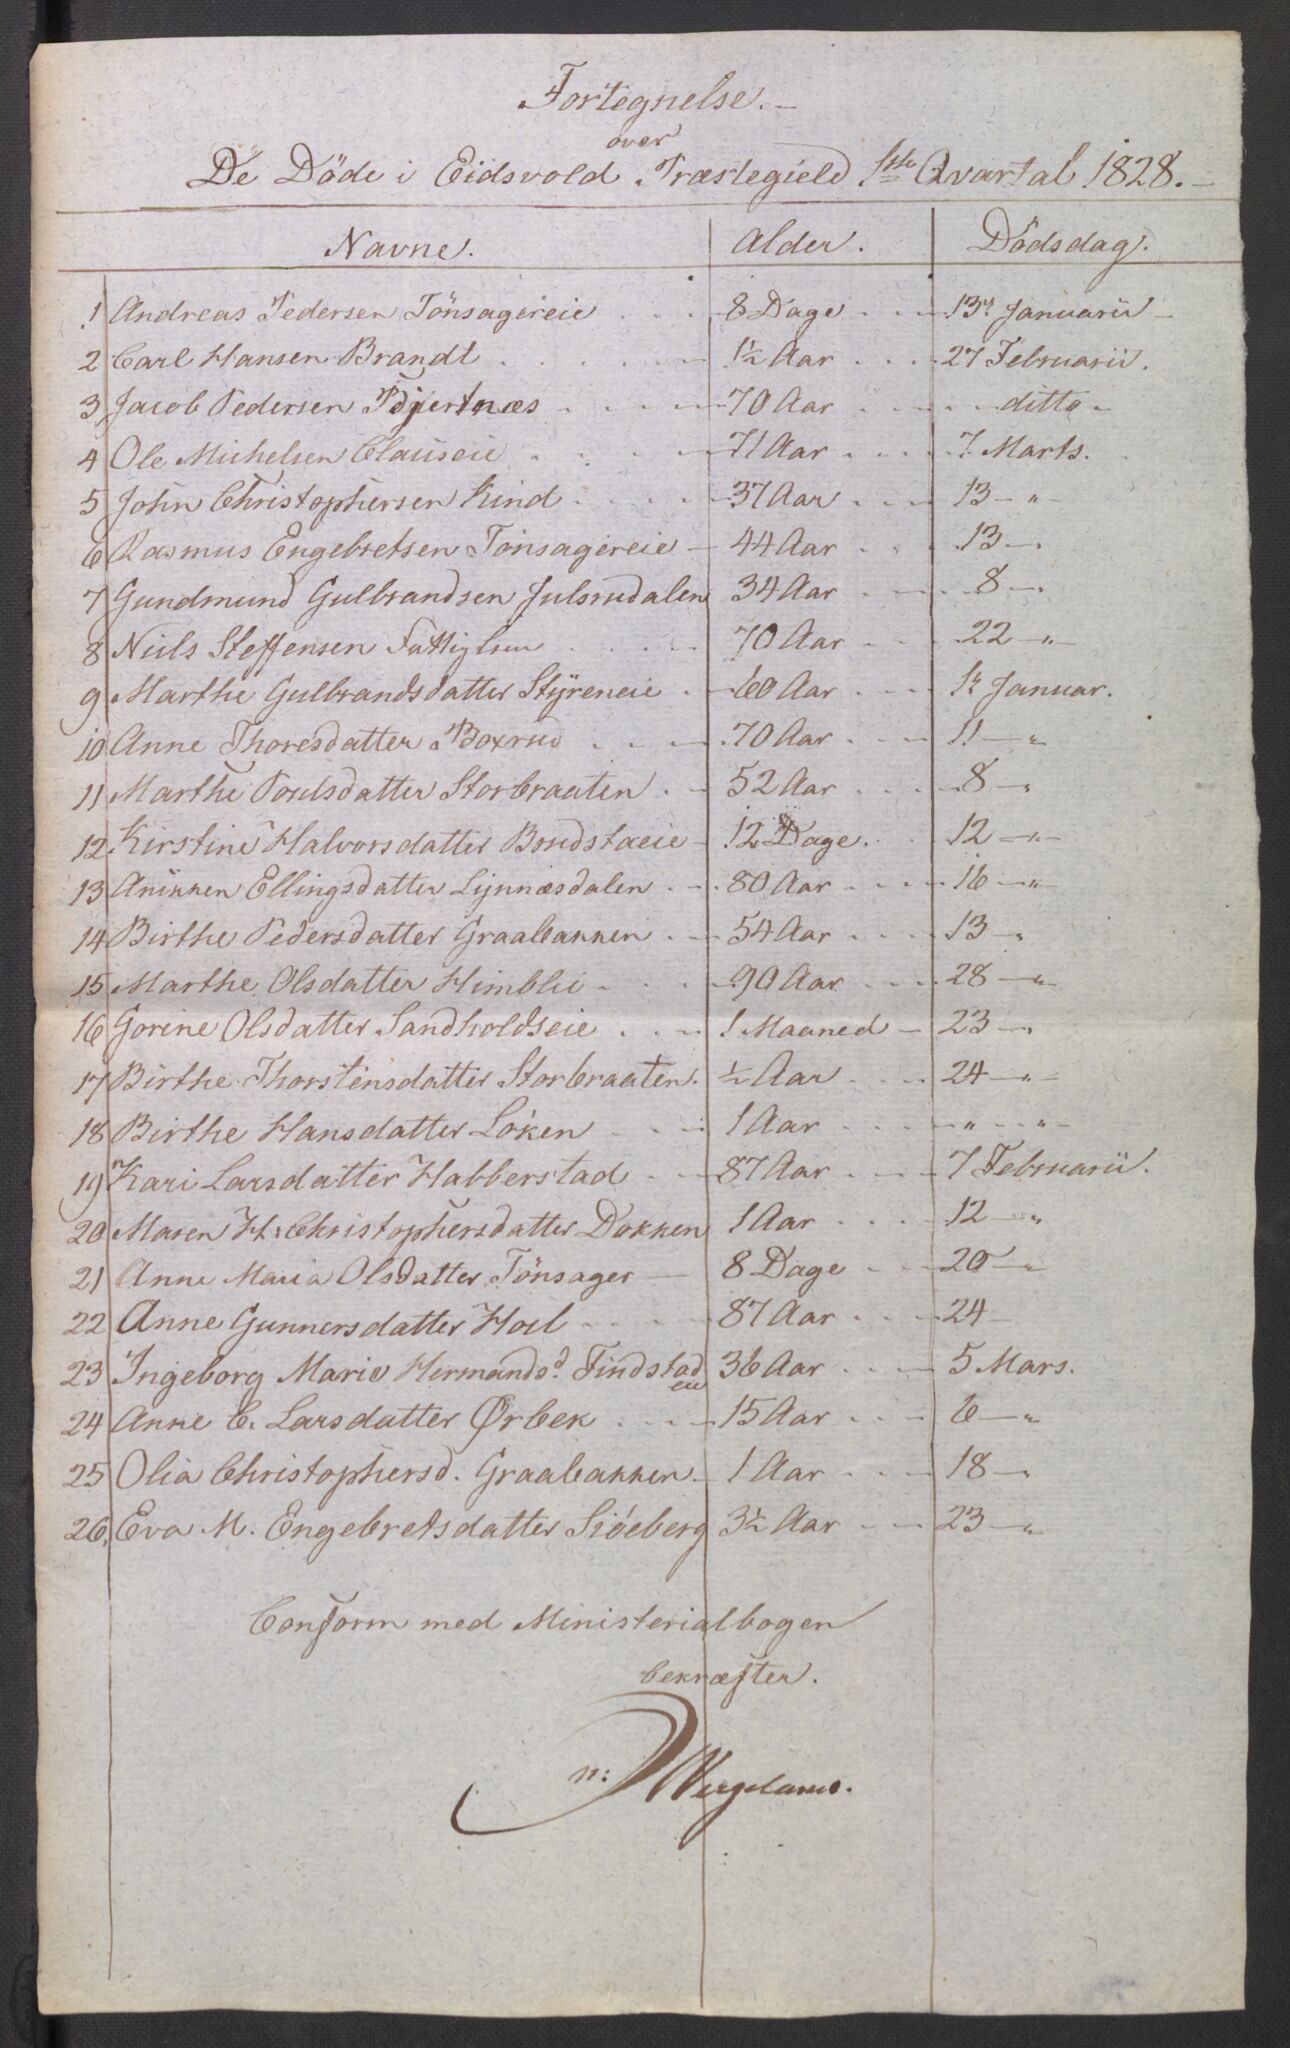 Fortegnelse.
over
De Döde i Eidsvold Præstegield 1ste Qvartal 1828.
Navne. Alder. Dödsdag.
1 Andreas Pedersen Tönsagereie 8 Dage 13de Januarii
2 Carl Hansen Brandt 1½ Aar 27 Februarii.
3 Jacob Pedersen 70 Aar ditto
4 Ole Michelsen Clauseie 71 Aar 7 Marts.
5 John Christophersen Kind 37 Aar 13 — "
6 Rasmus Engebretsen Tönsagereie 44 Aar 13 — "
7 Gundmund Gulbrandsen Julsrudalen 34 Aar 8 — "
8 Niels Steffensen Fattiglem 70 Aar 22 — "
9 Marthe Gulbrandsdatter Styreneie 60 Aar 1ste Januar.
10 Anne Thoresdatter Boxrud 70 Aar 11 — "
11 Marthe Poulsdatter Storbraaten 52 Aar 8 — "
12 Kirstine Halvorsdatter Bondstaeie 12 Dage 12 — "
13 Anikken Ellingsdatter Lynnæsdalen 80 Aar 16 — "
14 Birthe Pedersdatter Graabakken 54 Aar 13 — "
15 Marthe Olsdatter Himblie 90 Aar 28 — "
16 Gorine Olsdatter Sandholdseie 1 Maaned 23 — "
17 Birthe Thorstensdatter Storbraaten. ½ Aar 24 — "
18 Birthe Hansdatter Löken 1 Aar " — "
19 Kari Larsdatter Habberstad 87 Aar 7 Februarii.
20 Maren H: Christophersdatter Dokken 1 Aar 12 — "
21 Anne Maria Olsdatter Tönsager 8 Dage 20 — "
22 Anne Gunnersdatter Hoel 87 Aar 24 —
23 Ingeborg Marie Hermandsd. Findstad eie 36 Aar 5 Mars.
24 Anne C. Larsdatter Ørbek 15 Aar 6 — "
25 Olia Christophersd. Graabakken. 1 Aar 18 — "
26, Eva M. Engebretsdatter Siöeberg 3½ Aar 23 — "
Conform med Ministerialbogen
bekræfter.
n: Wergeland.